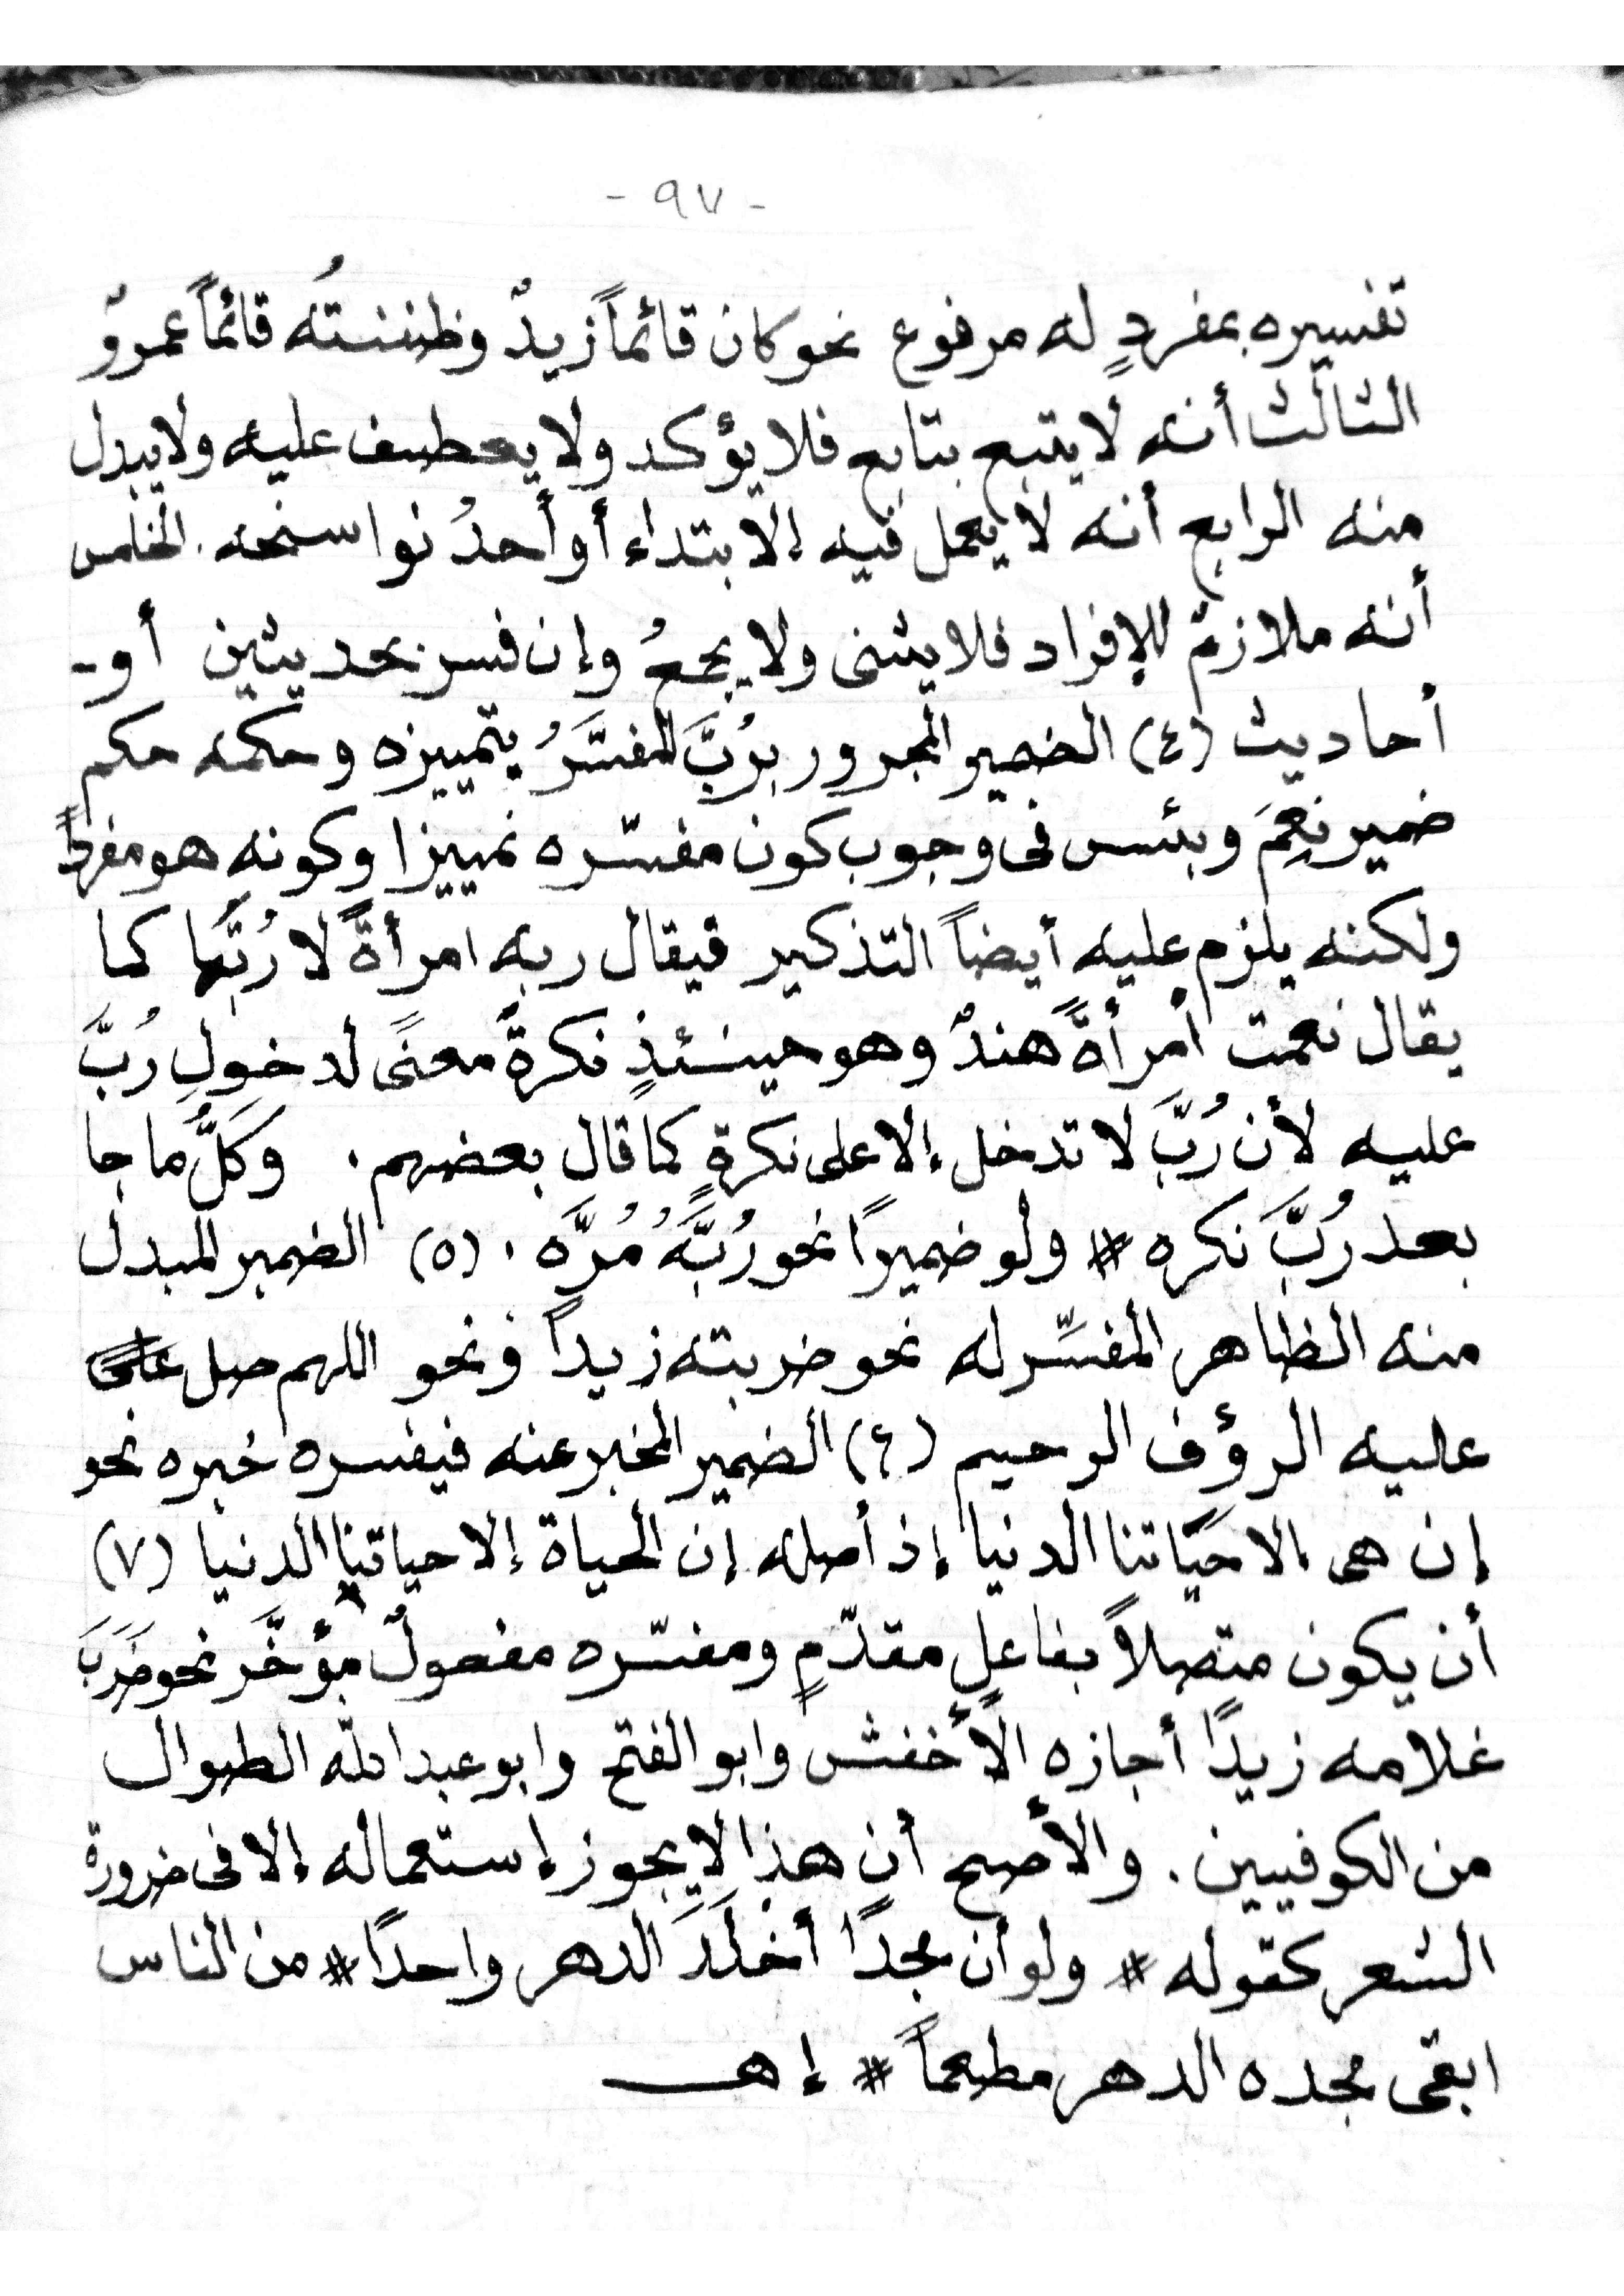 - ٩٧ -
تفسيره بمفردٍ له مرفوع نحو كان قائماً زيدٌ وظننتُه قائماً عمروٌ
الثالث أنه لا يتبع بتابع فلا يؤكد ولا يعطف عليه ولا يبدل
منه الرابع أنه لا يعمل فيه إلا بتداء أو أحدُ نواسخه. الخامس
أنه ملازمٌ للإفراد فلا يثنى ولا يجمعُ وإن فسر بحديثين أو -
أحاديث (٤) الضمير المجرور برُبَّ المفسَّرُ بتمييزه وحكمه حكم
ضمير نِعمَ وبئس فى وجوب كون مفسّره تمييزا وكونه هو مفرداً
ولكنه يلزم عليه أيضاً التذكير فيقال ربه امرأةً لا رُبَّها كما
يقال نعمت أمرأةً هندٌ وهو حينئذٍ نكرةً معنًى لدخولِ رُبَّ
عليه لأن رُبَّ لا تدخل إلا على نكرةٍ كما قال بعضهم. وَكلُّ ما جا
بعد رُبَّ نكره # ولو ضميرًا نحو رُبَّهُ مُرَّه. (٥) الضمير المبدل
منه الظاهر المفسِّر له نحو ضربته زيداً ونحو اللهم صل على
عليه الرؤف الرحيم (٦) الضمير المخبر عنه فيفسره خبره نحو
إن هى إلا حَيَاتنا الدنيا إذ أصله إن الحياة إلا حياتنا الدنيا (٧)
أن يكون متصلاً بفاعلٍ مقدّمٍ ومفسّره مفعولٌ مؤخَّر نحو ضَرَبَ
غلامه زيدًا أجازه الأخفش وابو الفتح وابو عبد الله الطوال
من الكوفيين. والأصح أن هذا لا يجوز إستعماله إلا فى ضرورة
الشعر كقوله # ولو أن مجدًا أخْلَدَ الدهر واحدًا # من الناس
ابقى مجده الدهر مطعماً # إهـ